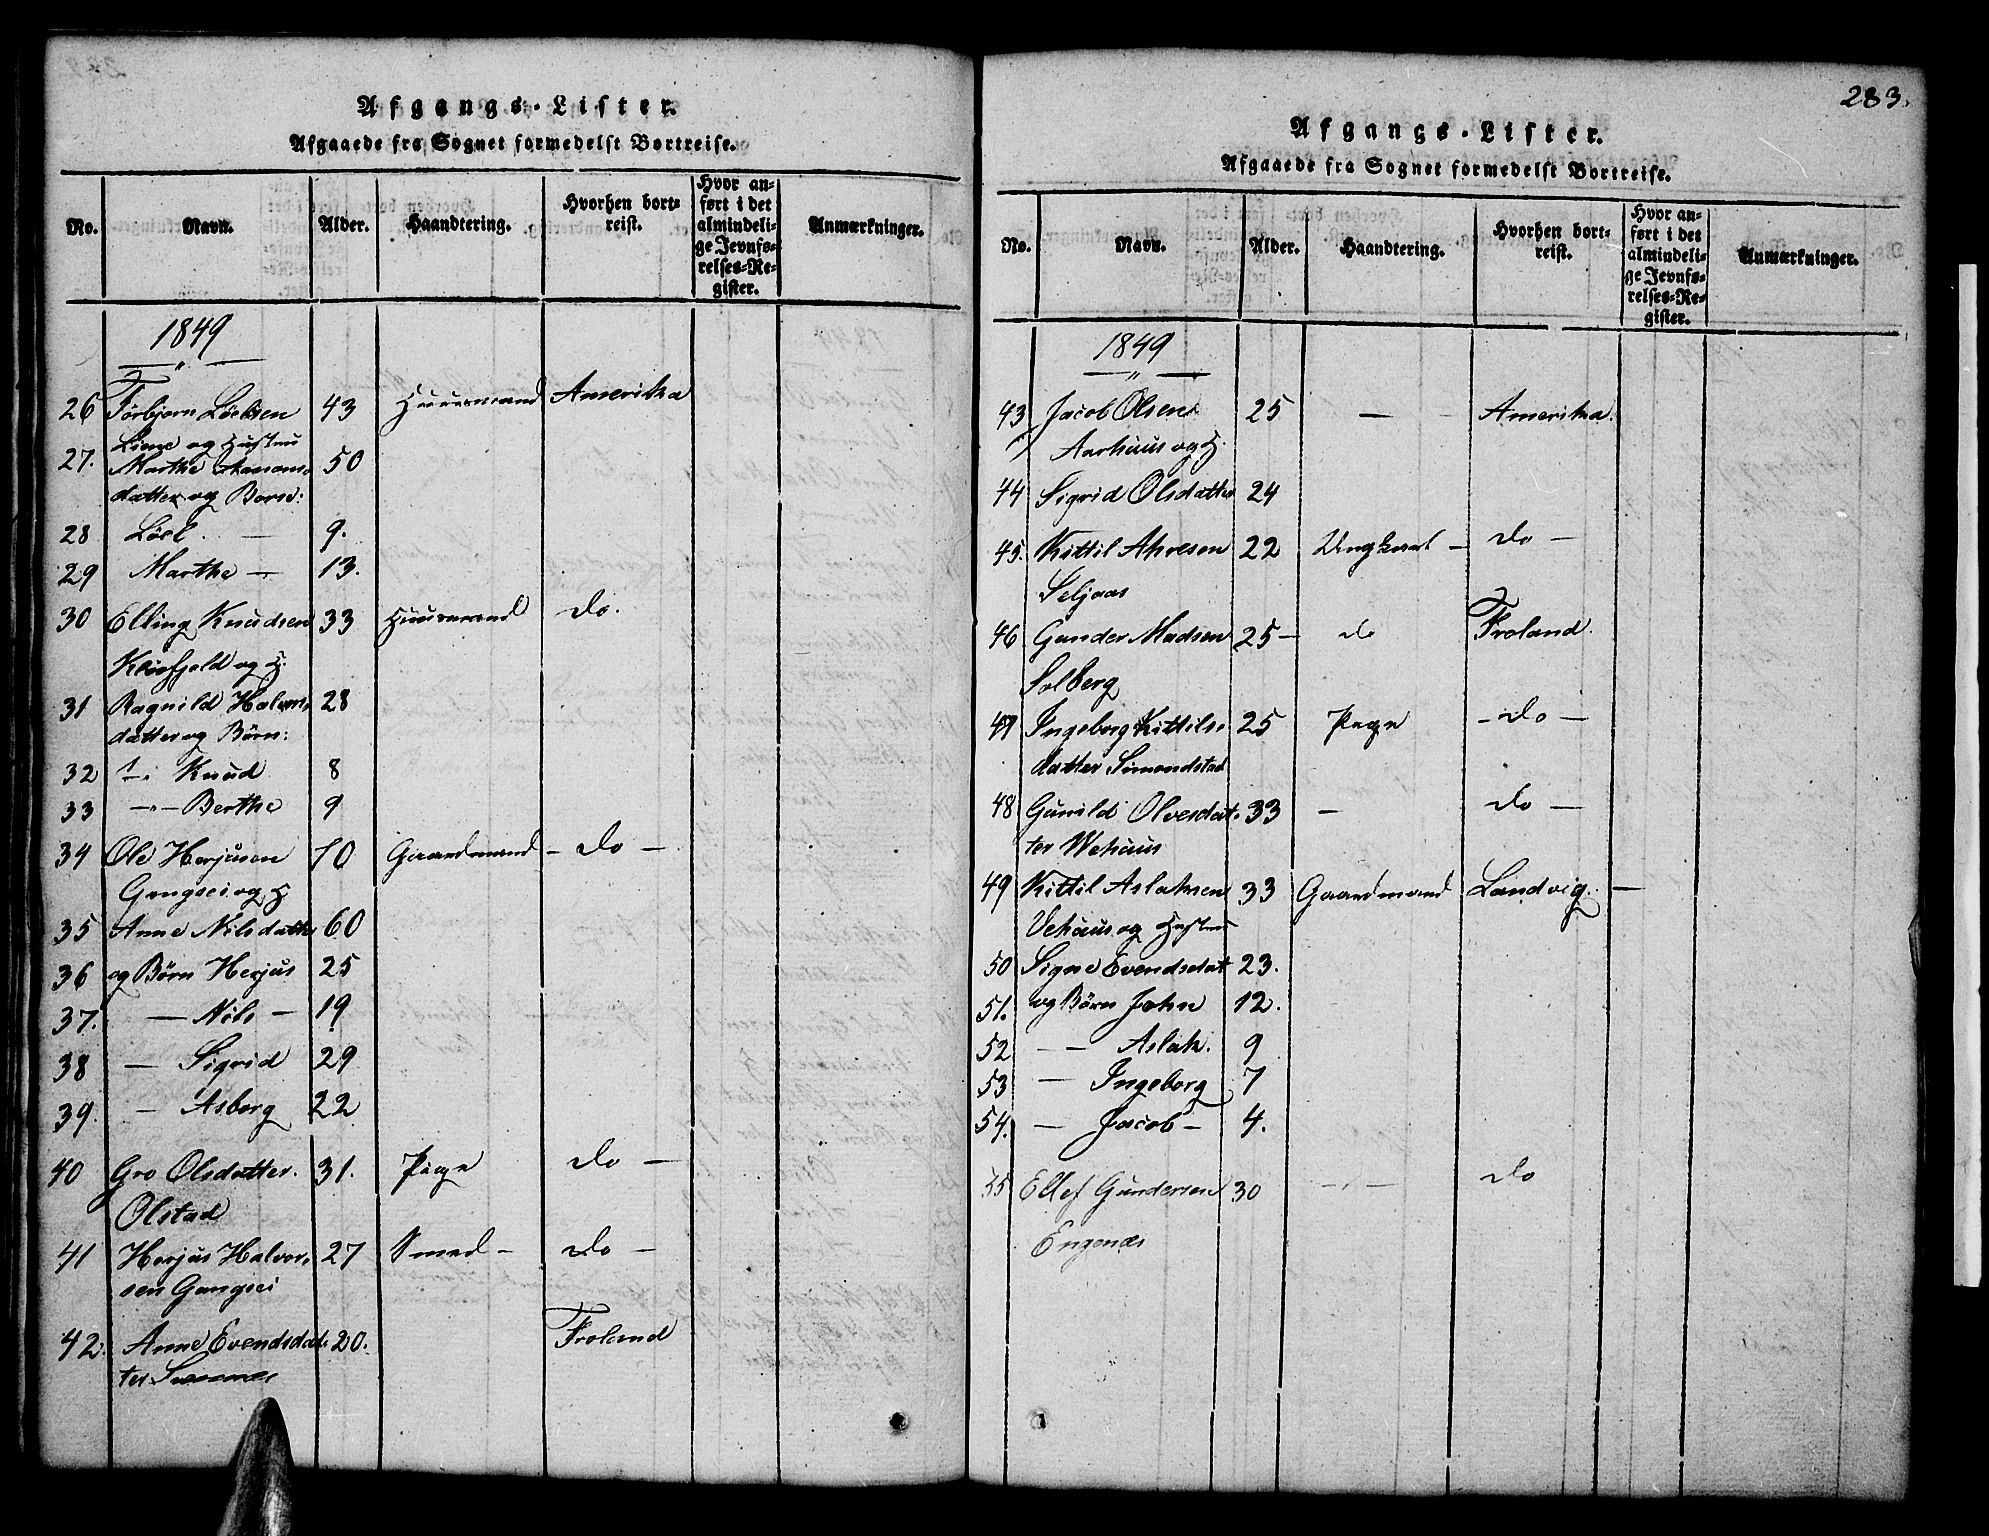 Afgangs-Lister.
Afgaaede fra Sognet formedelst Bortreise.
No. Navn. Alder. Haandtering. Hvorhen bortreist. Hvor anført i det almindelige Jevnførelses-Register. Anmærkninger.
1849
26 Torbjørn Løelsen 43 Huusmand Amerika
Liene og Hustru
27. Marthe Aanons- 50
datter og Børn:
28 Løel. — 9.
29 Marthe — 13.
30 Elling Knudsen 33 Huusmand do.
og H.
31 Ragnild Halvors- 28
datter og Børn:
32 Knud 8
33 —"— Berthe 9
34 Ole Herjusen 70 Gaardmand — do —
Gangsei og H
35 Anne Nilsdatter 60
36 og Børn Herjus 25
37. — Nils — 19
38 — Sigrid 29
39. — Asborg 22
40 Gro Olsdatter. 31. Pige do —
Olstad
41 Herjus Halvor- 27 Smed — do —
sen Gangsei
42. Anne Evendsdat- 20. Froland
ter
283.
Afgangs-Lister.
Afgaaede fra Sognet formedelst Bortreise.
No. Navn. Alder. Haandtering. Hvorhen bortreist. Hvor anført i det almindelige Jevnførelses-Register. Anmærkninger.
1849
43 Jacob Olsen 25 — Amerika.
Aarhuus og H.
44 Sigrid Olsdatter 24
45. Kittil 22 Ungkarl — do —
Seljaas
46 Gunder Madsen 25 — do Froland.
Solberg
47 Ingeborg Kittils- 25 Pige — do —
datter Simondstad
48 Gunild Olvesdat- 33 — do —
ter Wehuus
49 Kittil Aslaksen 33 Gaardmand Landvig. —
Vehuus og Hustru
50 Signe Evendsdat 23.
51. og Børn John 12.
52 — — Aslak. 9
53 — Ingeborg 7
54. — Jacob — 4.
55 Ellef Gundersen 30 — " — do
Engenæs